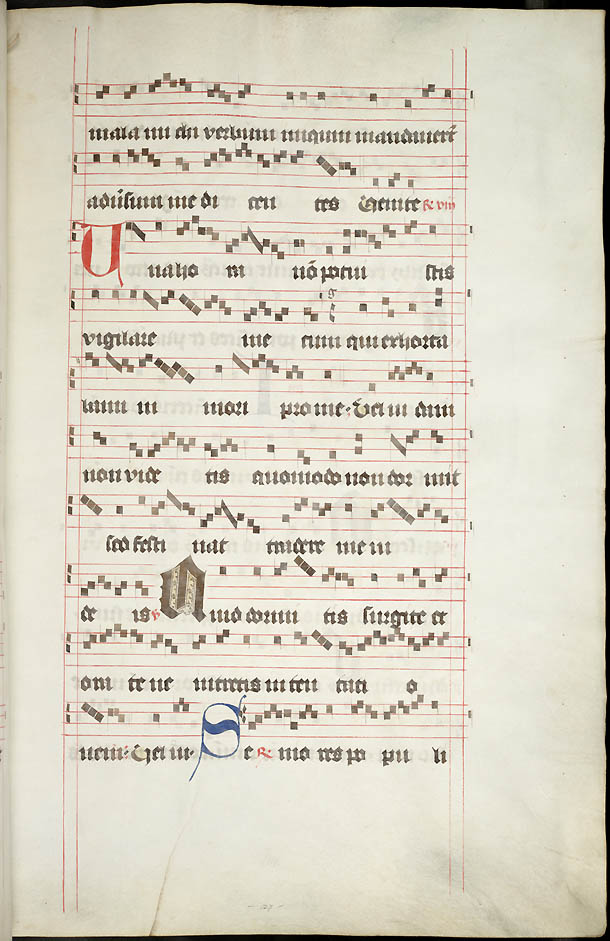 mala mi chi verbum iniquum mandauerūt
aduersum me di cen tes Uenite ℟ viii
Una ho ra nō potui stis
vigilare me cum qui exhorta
bami ni mori pro me. Uel iu dam
non vide tis quomodo non dor mit
sed festi nat tradere me iu
de is ℣ Quid dormi tis surgite et
ora te ne intretis in ten tati o
nem. Uel iu. Se ℟ nio res po pu li